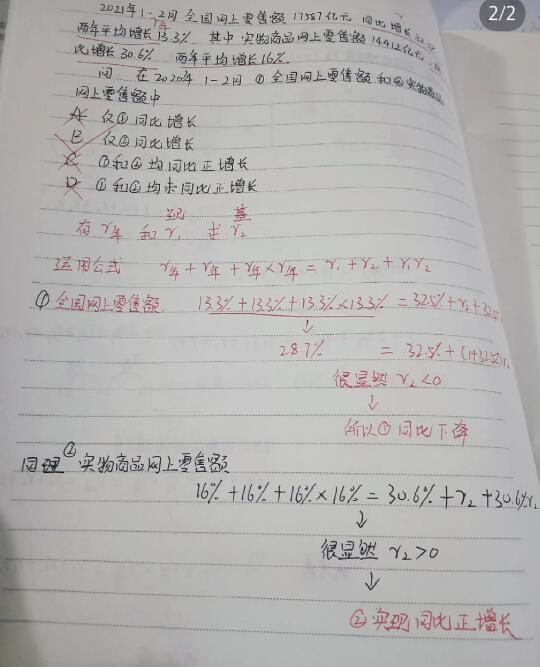 2/2
2021年1-2月 全国网上零售额 17587亿元 同比增长32.
r年
两年平均增长13.3%. 其中实物商品网上零售额 14412亿元
比增长 30.6% 两年平均增长16%.
问: 在2020年 1-2月 ①全国网上零售额 和②实物商品
网上零售额中
A 仅①同比增长
B 仅②同比增长
C ①和②均同比正增长
D ①和②均未同比正增长
现 基
有 r年 和 r₁ 求 r₂
运用公式 r年+r年+r年×r年=r₁+r₂+r₁r₂
①全国网上零售额. 13.3%+13.3%+13.3%×13.3% =32.5%+r₂+32.5%
↓
28.7% = 32.5%+(1+32.5%)r₂
很显然 r₂<0
↓
所以①同比下降
同理 ②实物商品网上零售额
16%+16%+16%×16%=30.6%+r₂+30.6%r₂
↓
很显然 r₂>0
↓
②实现同比正增长